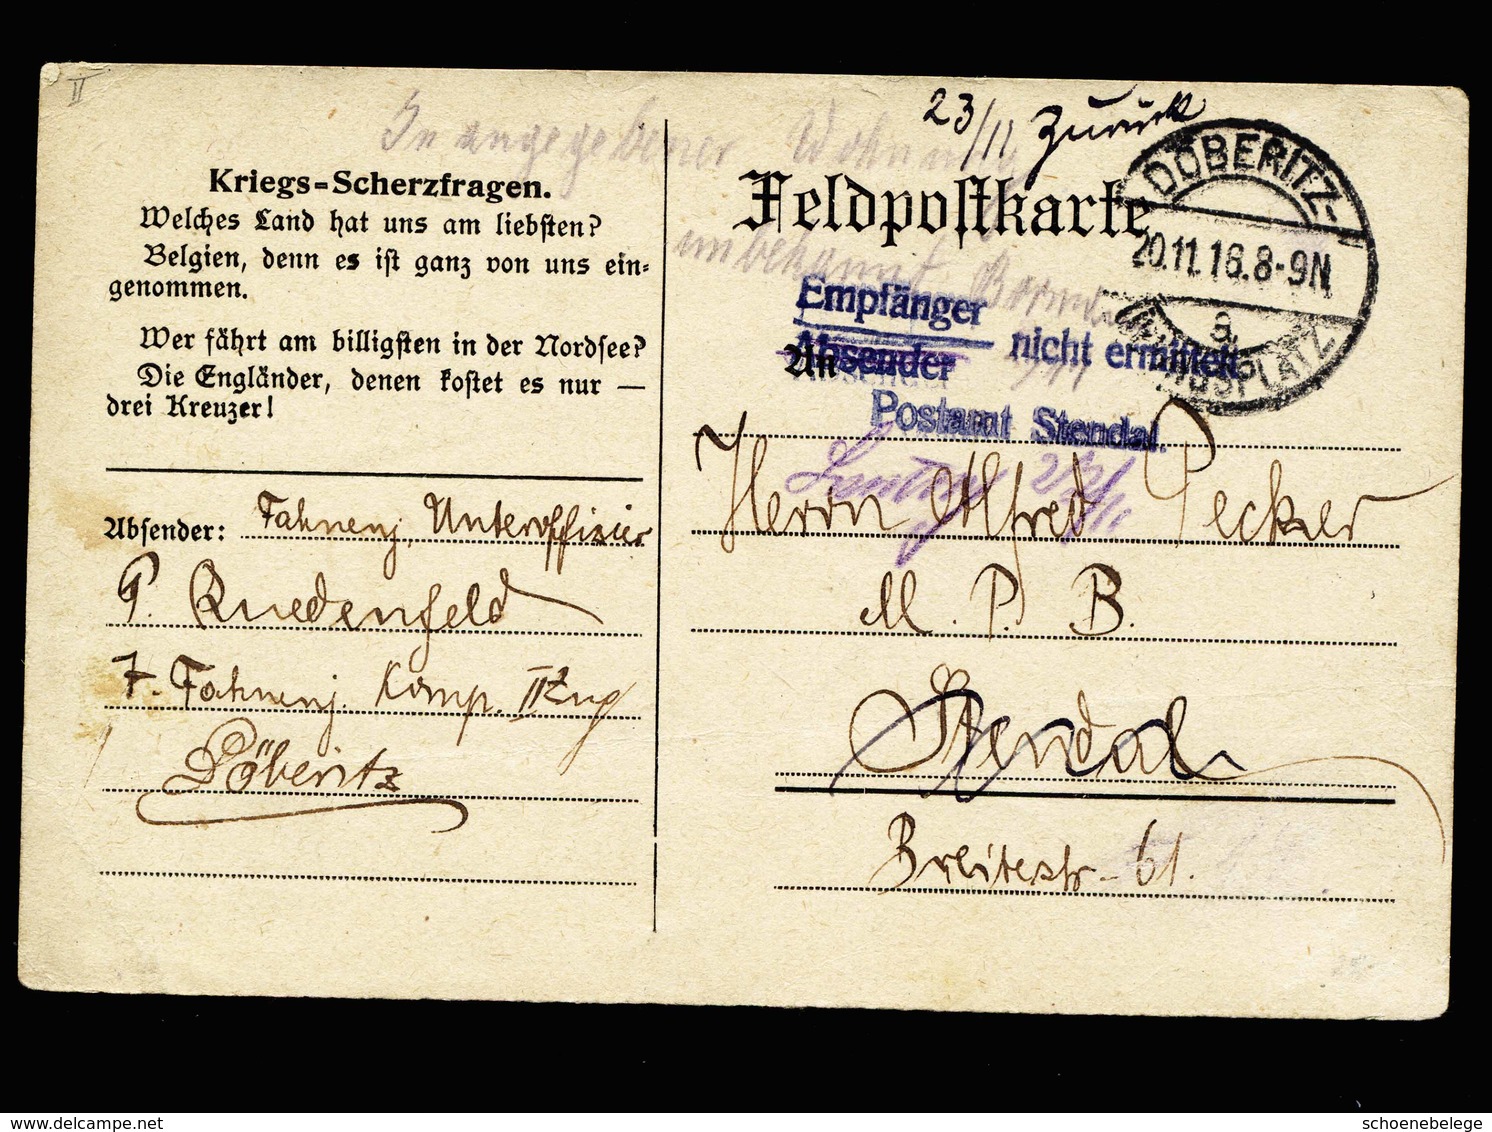 II
In angegebener Wohnung
unbekannt
23/11 Zurück
Kriegs=Scherzfragen.
Welches Land hat uns am liebsten?
Belgien, denn es ist ganz von uns ein=
genommen.
Wer fährt am billigsten in der Nordsee?
Die Engländer, denen kostet es nur —
drei Kreuzer!
Absender: Fahnenj. Unteroffizier
P. Ruedenfeld
7. Fahnenj. Komp. II Zug
Döberitz
Feldpostkarte
DÖBERITZ-
20.11.16.8-9N
a
ÜBUNGSPLATZ
Empfänger
Absender nicht ermittelt
An
Postamt Stendal.
22/11
Herrn Alfred Pecker
M. P. B.
Stendal
Breitestr. 61.
www.delcampe.net
schoenebelege